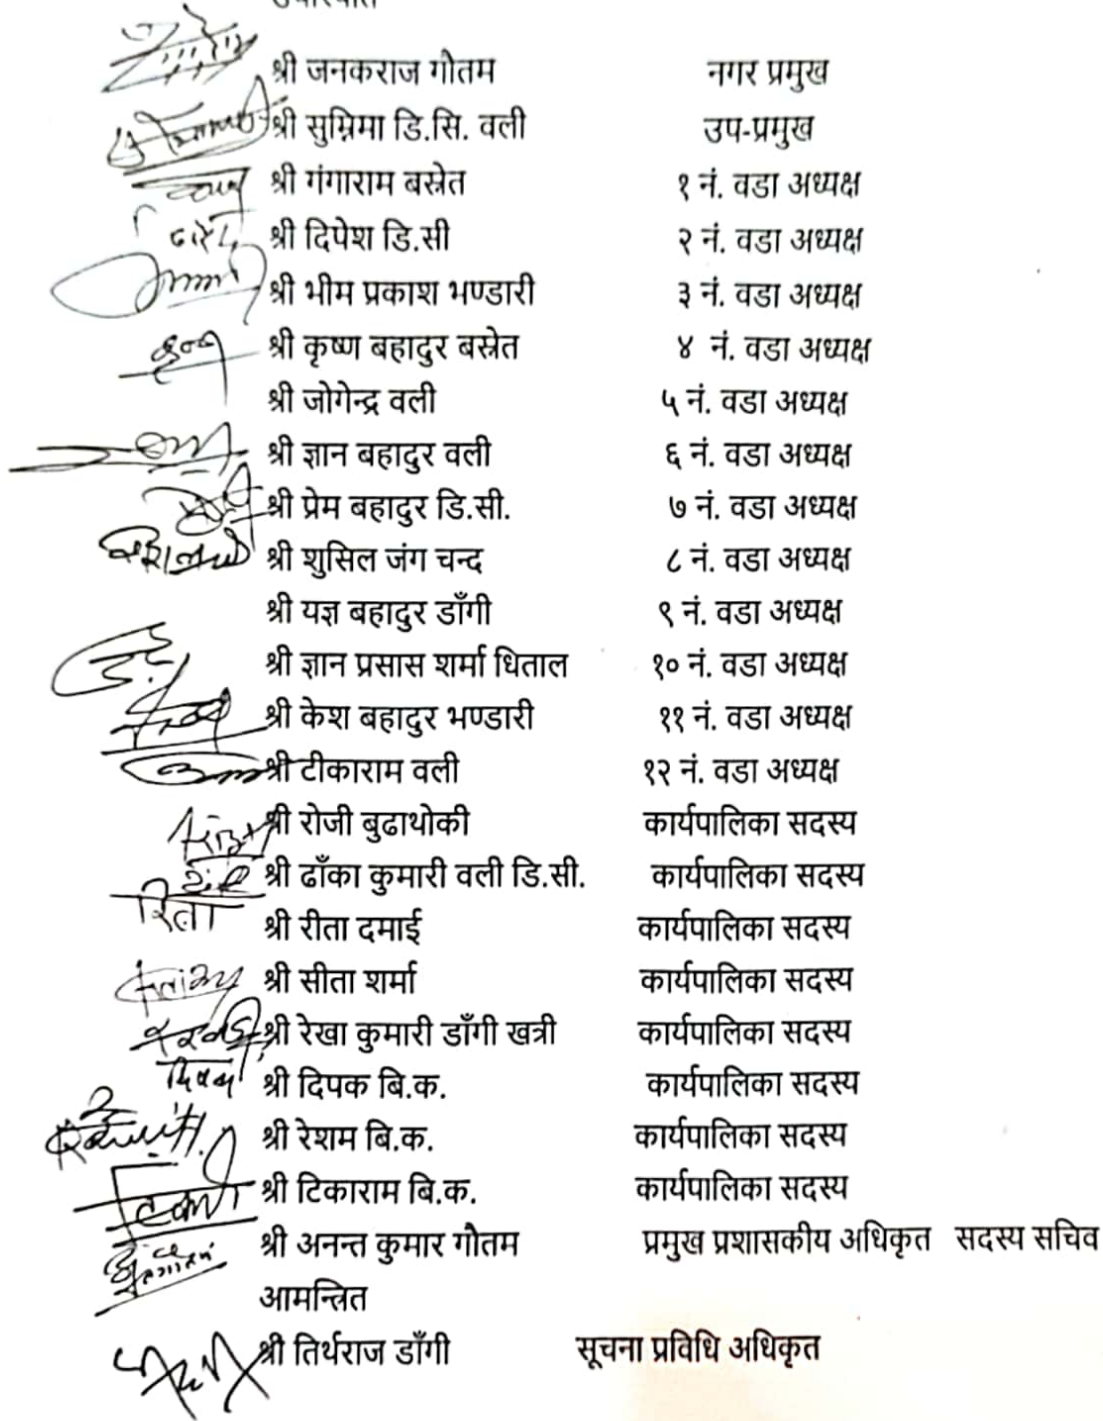 उपस्थिति
श्री जनकराज गौतम नगर प्रमुख
श्री सुम्निमा डि.सि. वली उप-प्रमुख
श्री गंगाराम बस्नेत १ नं. वडा अध्यक्ष
श्री दिपेश डि.सी २ नं. वडा अध्यक्ष
श्री भीम प्रकाश भण्डारी ३ नं. वडा अध्यक्ष
श्री कृष्ण बहादुर बस्नेत ४ नं. वडा अध्यक्ष
श्री जोगेन्द्र वली ५ नं. वडा अध्यक्ष
श्री ज्ञान बहादुर वली ६ नं. वडा अध्यक्ष
श्री प्रेम बहादुर डि.सी. ७ नं. वडा अध्यक्ष
श्री शुसिल जंग चन्द ८ नं. वडा अध्यक्ष
श्री यज्ञ बहादुर डाँगी ९ नं. वडा अध्यक्ष
श्री ज्ञान प्रसास शर्मा धिताल १० नं. वडा अध्यक्ष
श्री केश बहादुर भण्डारी ११ नं. वडा अध्यक्ष
श्री टीकाराम वली १२ नं. वडा अध्यक्ष
श्री रोजी बुढाथोकी कार्यपालिका सदस्य
श्री ढाँका कुमारी वली डि.सी. कार्यपालिका सदस्य
रिता श्री रीता दमाई कार्यपालिका सदस्य
श्री सीता शर्मा कार्यपालिका सदस्य
श्री रेखा कुमारी डाँगी खत्री कार्यपालिका सदस्य
श्री दिपक बि.क. कार्यपालिका सदस्य
श्री रेशम बि.क. कार्यपालिका सदस्य
श्री टिकाराम बि.क. कार्यपालिका सदस्य
श्री अनन्त कुमार गौतम प्रमुख प्रशासकीय अधिकृत सदस्य सचिव
आमन्त्रित
श्री तिर्थराज डाँगी सूचना प्रविधि अधिकृत